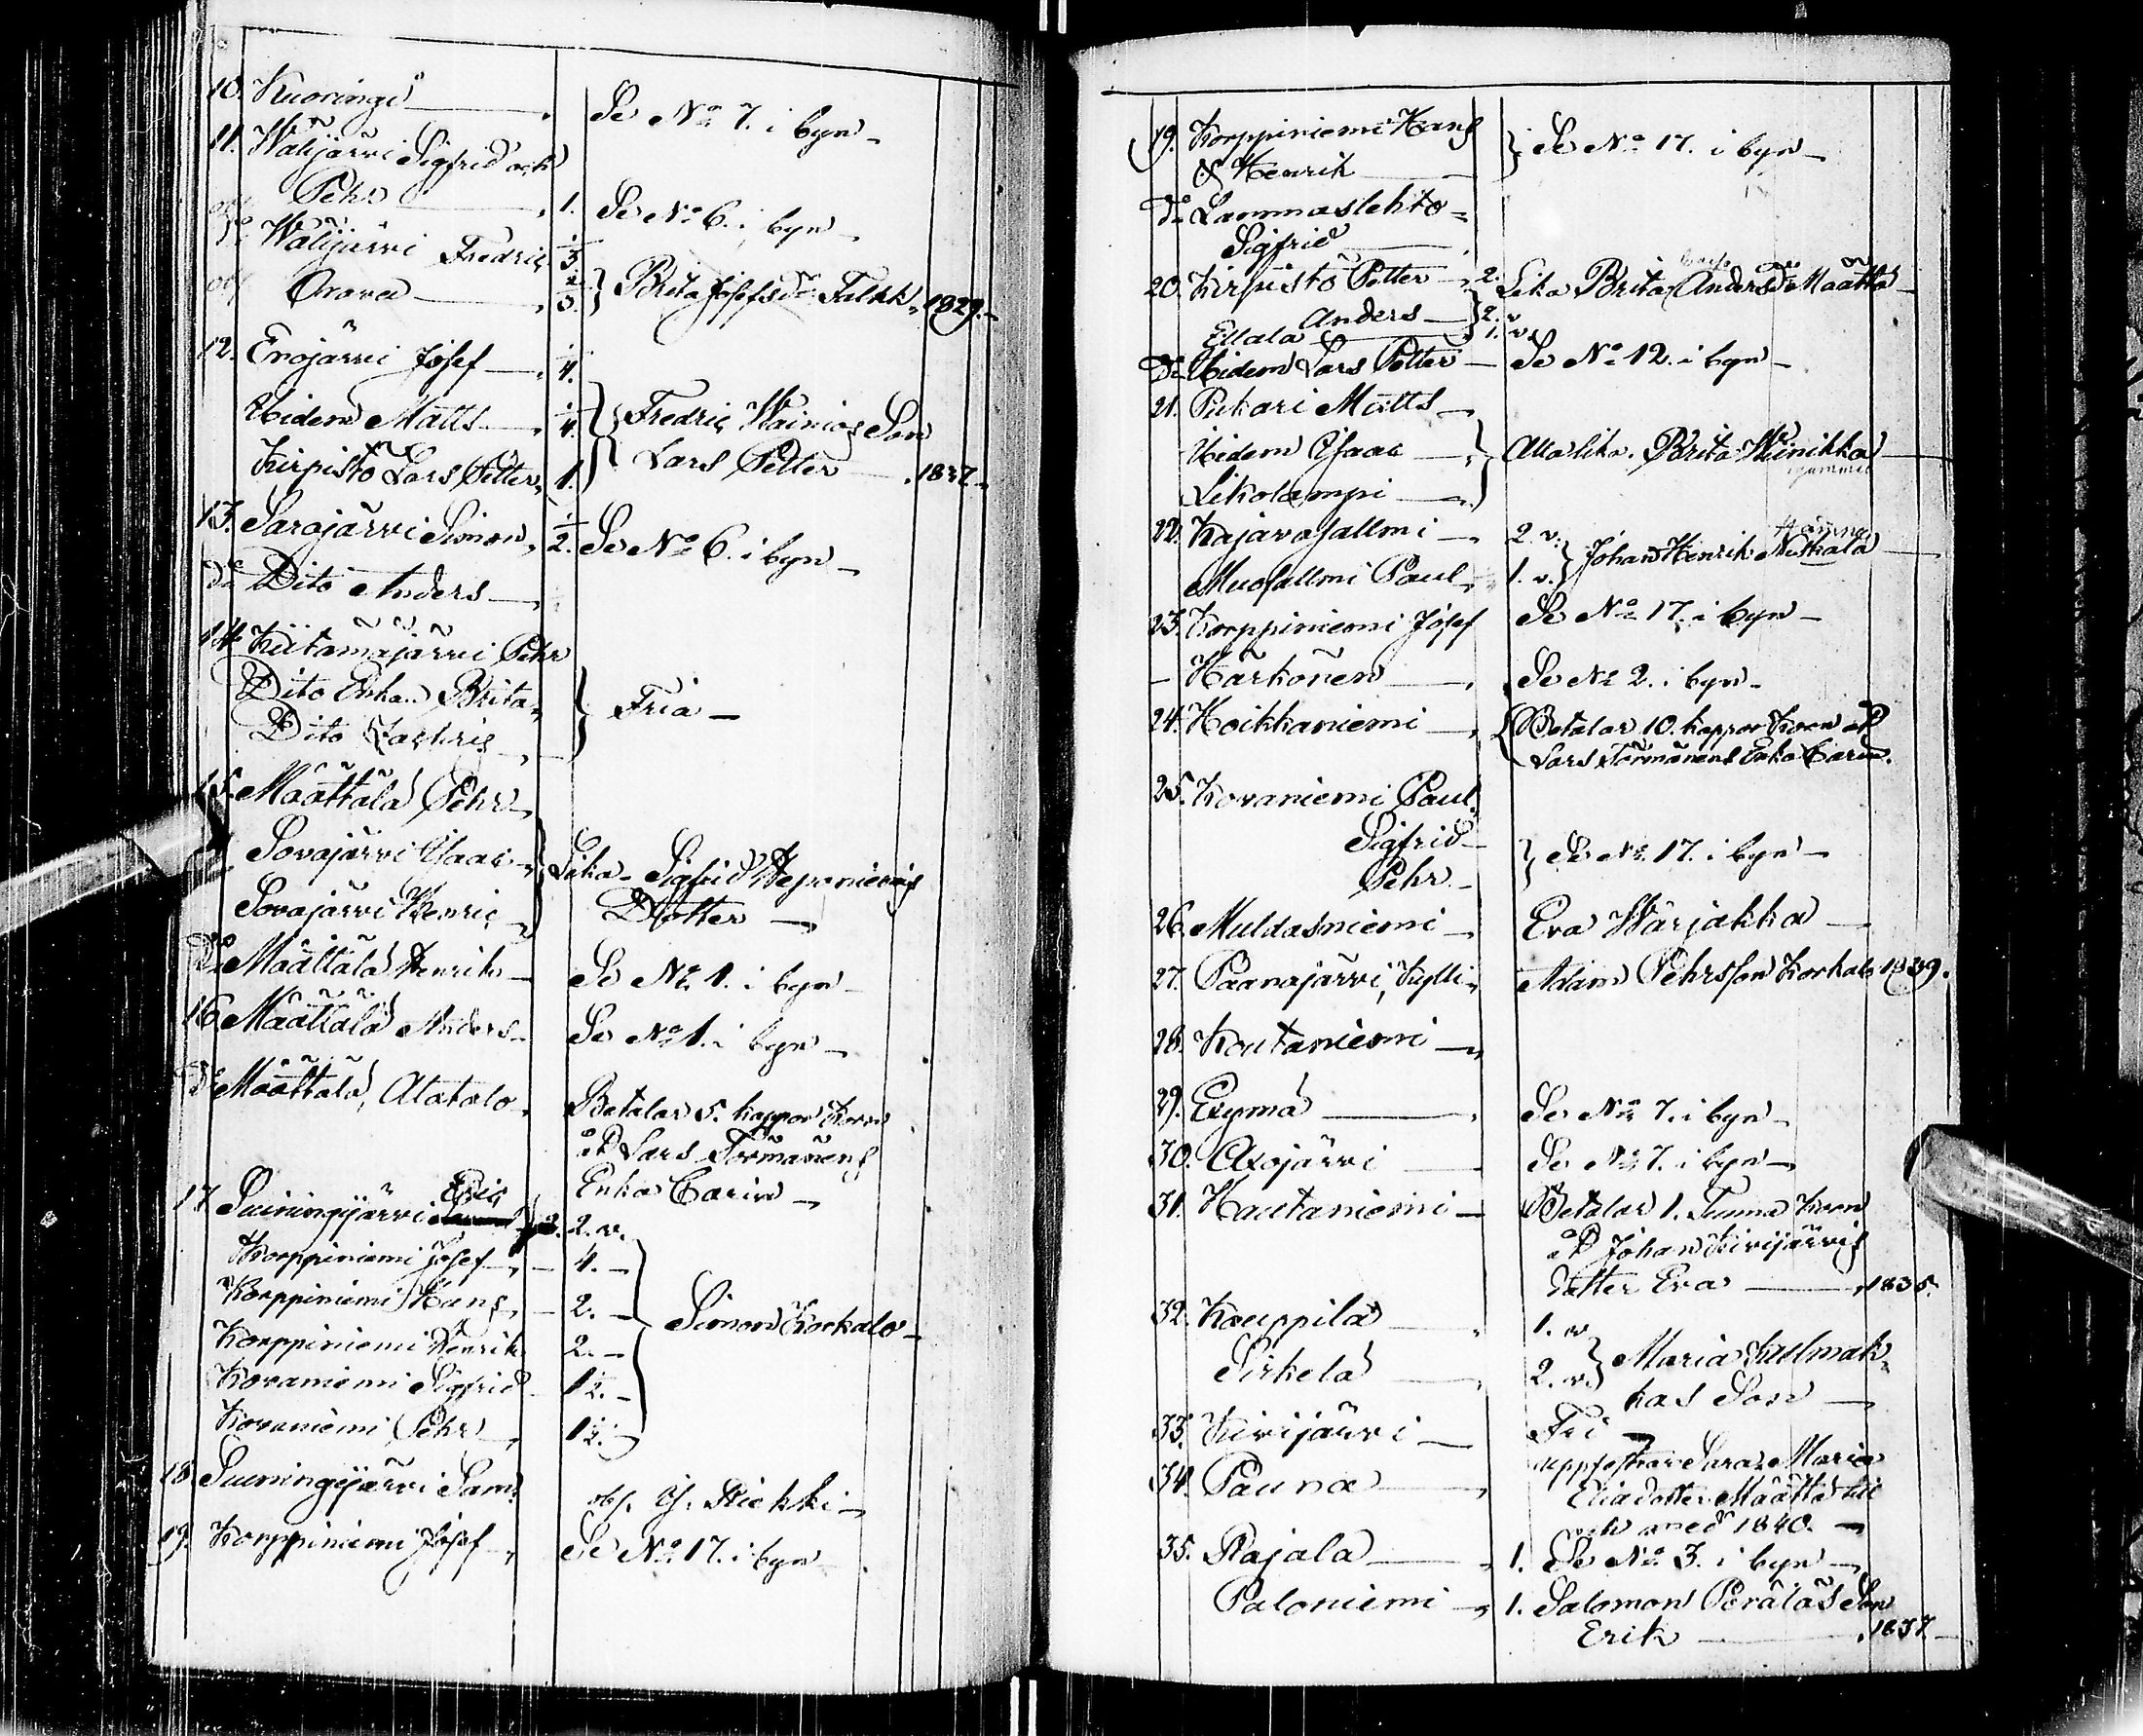 10. Kuoringi — Se No 7. i byn —
11. Wälijärvi Sigfrid och
Pehr — 1. Se No 6. i byn —
Do Wälijärvi Fredric 1/3
Orava — 2/3. } Brita Josefsdr Talkk. 1829. —
12. Enojärvi Josef — 1/4.
Uidem Matts — 1/4. } Fredric Wainios Son
Kirpistö Lars Petter, 1. } Lars Petter — 1837. —
13. Sarajärvi Simon, 1/2. Se No 6. i byn —
do Dito Anders —
14. Kiitämäjärvi Pehr
Dito Enka Brita } Fria —
Dito Zachris
15. Määttälä Pehr —
Sovajärvi Isaac — } Lika — Sigfrid Heponiemis
Sovajärvi Henric — Dotter —
Do Määttälä Henrik — Se No 1. i byn —
16. Määttälä Anders — Se No 1. i byn —
Do Määttälä, Alatalo — Betalar 5. kappar Korn
åt Lars Törmänens
Enka Carin —
17. Suiningijärvi Eric 2. v.
Korppiniemi Josef — 4. —
Korppiniemi Hans, — 2. —
Korppiniemi Henrik 2. — } Simon Korkalo —
Kovaniemi Sigfrid 1 1/2. —
Kovaniemi Pehr — 1 1/2. —
18. Suiningijärvi Sam. Riekki —
19. Korppiniemi Josef — Se No 17. i byn
19. Korppiniemi Hans
& Henrik — } Se No 17. i byn —
Do Lammaslehto =
Sigfrid —
20. Kirpistö Petter — 2. Lika Brita Andersdr Määttä —
Anders — } 2. v
Ellala — 1. v.
Do Uidem Lars Petter — Se No 12. i byn —
21. Pukari Matts —
Uidem Isaac — } Alla lika. Brita Wiinikka —
Likolampi —
22. Kajavasallmi — 2. v. } Johan Henrik Niskala —
Muosallmi Paul, 1. v.
23. Korppiniemi Josef Se No 17. i byn —
— Härkönen — Se No 2. i byn —
24. Hoikkaniemi — { Betalar 10. kappar Korn åt
Lars Törmänens Enka Carin.
25. Kovaniemi Paul.
Sigfrid — } Se No 17. i byn —
Pehr —
26. Muldasniemi — Eva Wärjäkkä —
27. Paanajärvi, Kylli — Adam Pehrsson Korkalo 1839.
28. Koutaniemi —
29. Exymä — Se No 7. i byn —
30. Axojärvi — Se No 7. i byn —
31. Hautaniemi — Betalar 1. Tunna Korn
åt Johan Kivijärvis
dotter Eva — 1835.
32. Kauppila — 1. v } Maria Kullmak
Sirkela — 2. v } kas Son —
33. Kivijärvi — Fri —
34. Pauna — uppfostrar Sara Maria
Eliadotter Määttä till
och med 1840. —
35. Rajala — 1. Se No 3. i byn —
Paloniemi — 1. Salomon Peräläs Son
Erik — 1837 —